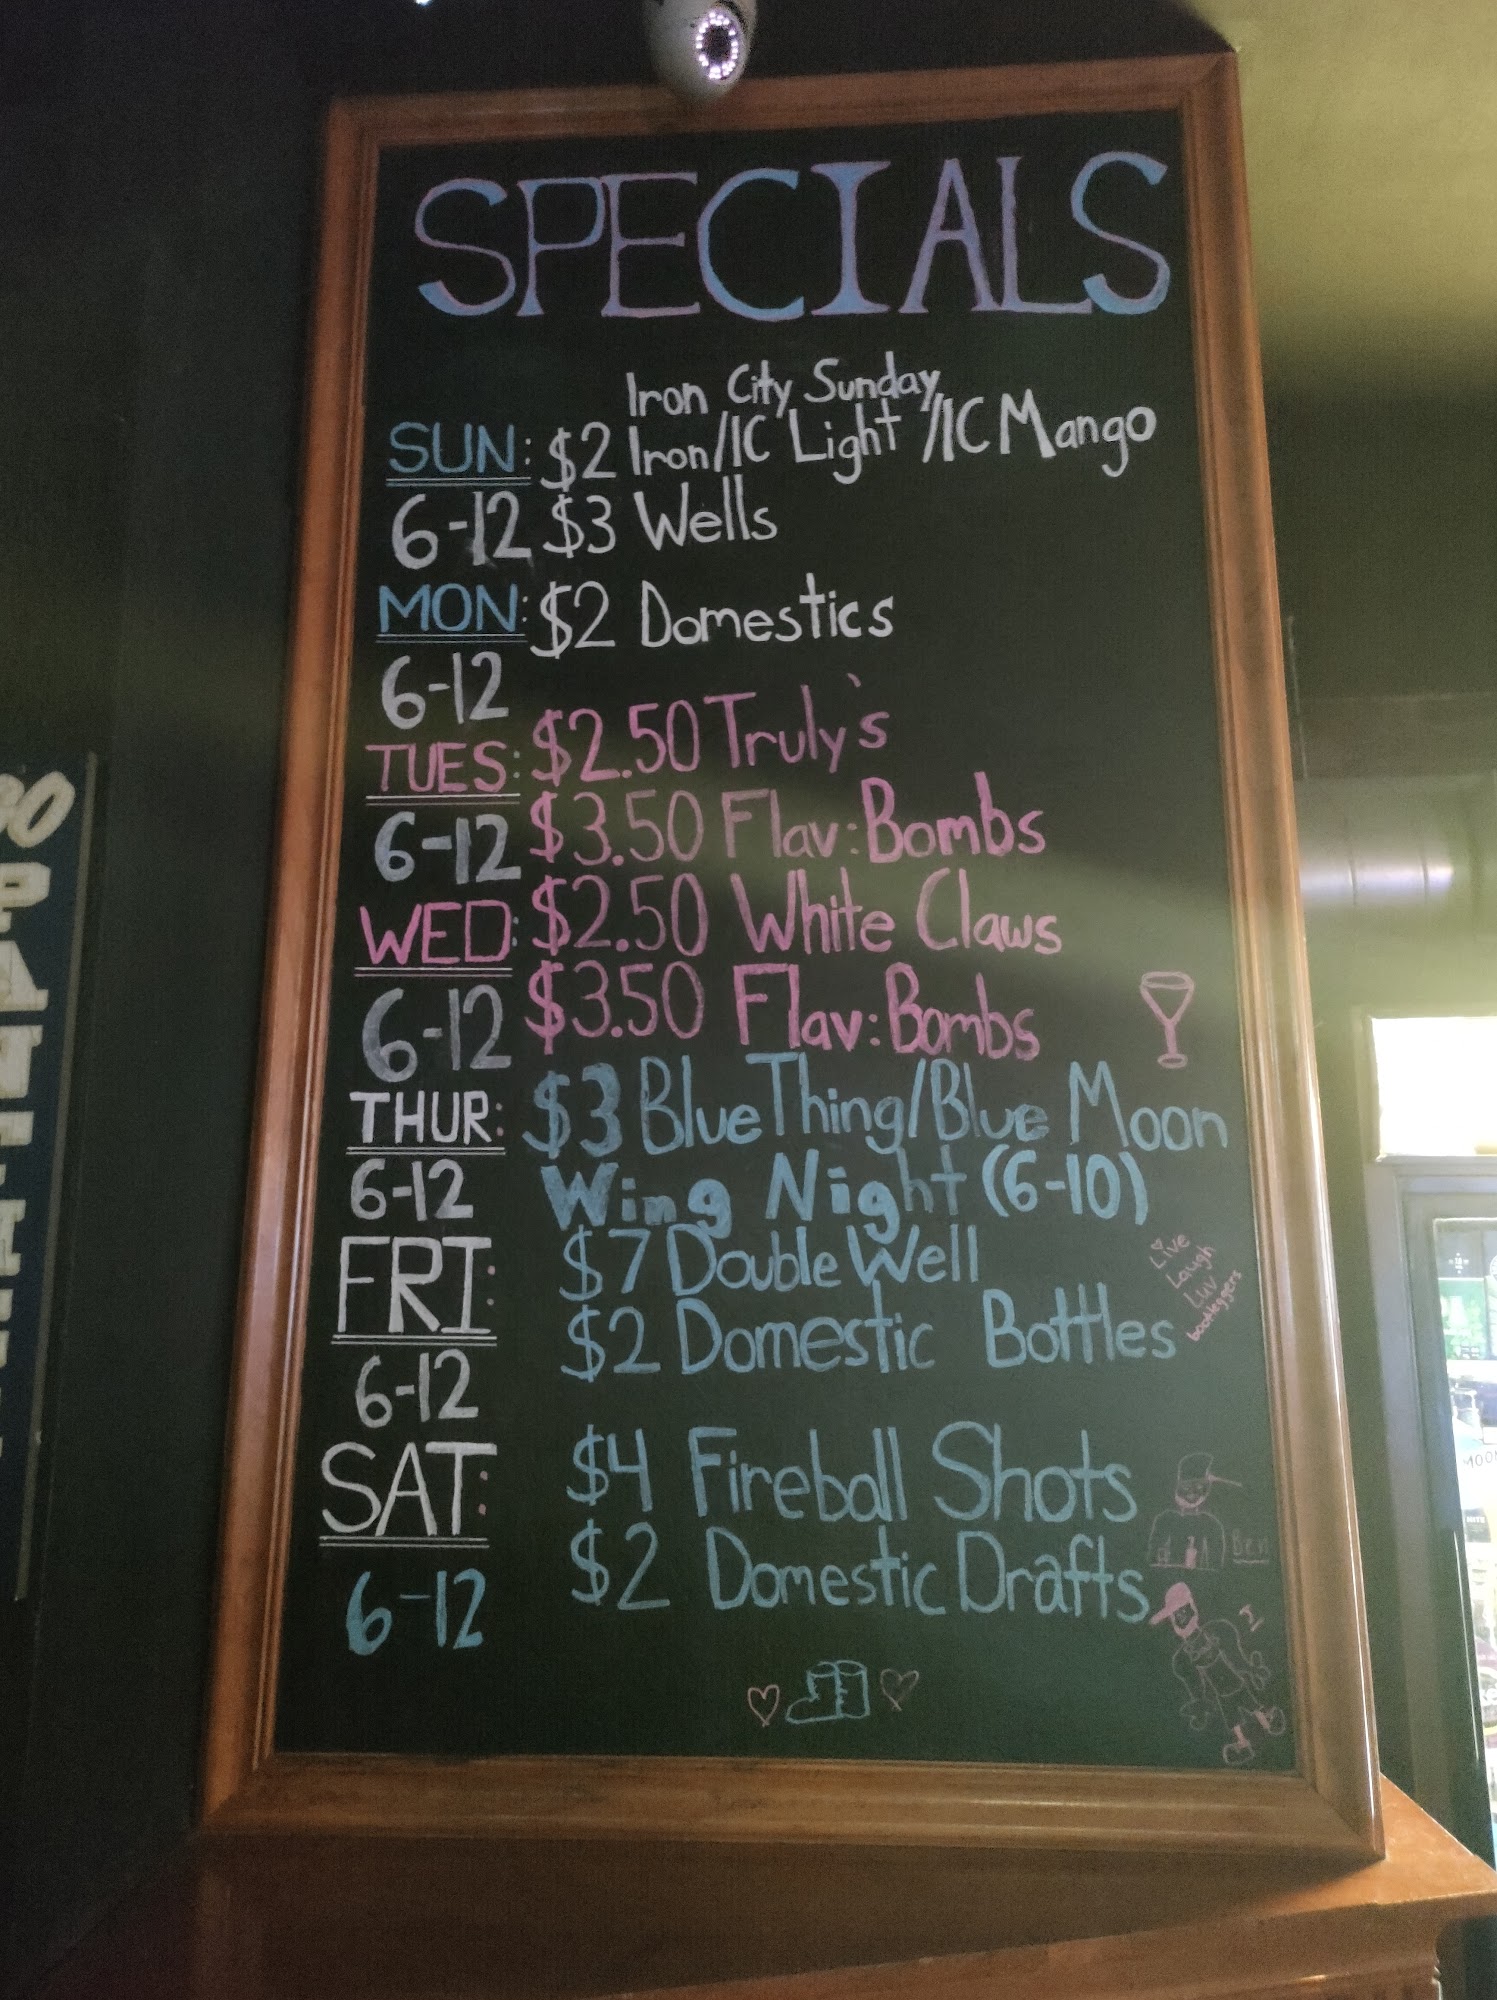 SPECIALS
Iron City Sunday
SUN: $2 Iron/IC Light/IC Mango
6-12 $3 Wells
MON: $2 Domestics
6-12
TUES: $2.50 Truly's
6-12 $3.50 Flav: Bombs
WED: $2.50 White Claws
6-12 $3.50 Flav: Bombs
THUR: $3 Blue Thing/Blue Moon
6-12 Wing Night (6-10)
FRI: $7 Double Well
$2 Domestic Bottles
6-12
Live
Laugh
Luv
bootleggers
SAT: $4 Fireball Shots
$2 Domestic Drafts
6-12
Ben